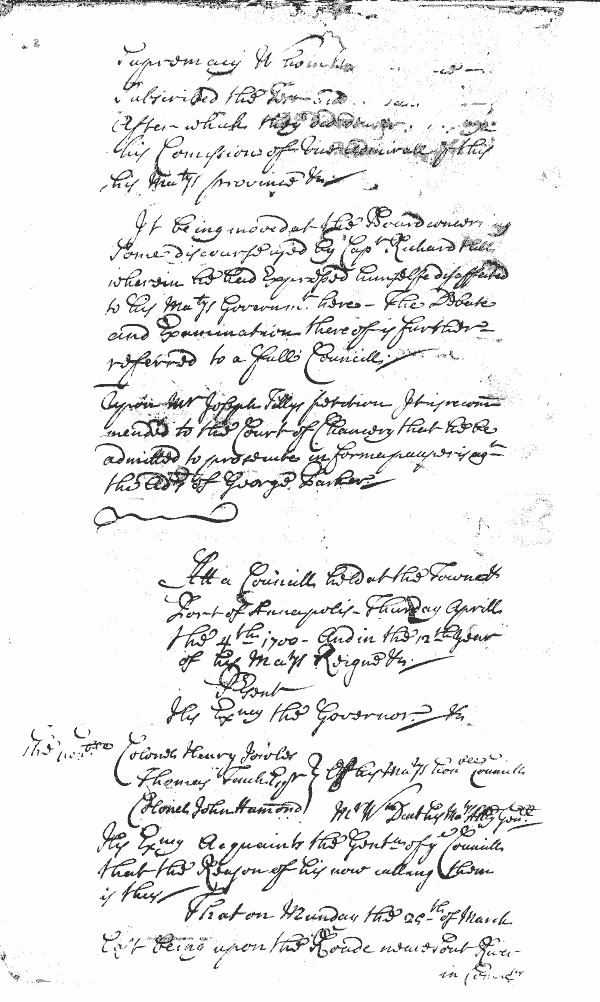 Supremacy
Subscribed the
After which they
his Comission of Vice Admirall of this
his Matys province &c.
It being moved at the Board
Some discourse used by Capt. Richard Hill
wherein he had Expressed himselfe disaffected
to his Matys Governmt. here - The Debate
and Examination thereof is further
referred to a full Councill.
Upon Mr Joseph Tillys petition It is recom
mended to the Court of Chancery that he be
admitted to prosecute in forma pauperis agt
the of George Parker
Att a Councill held at the Towne &
Port of Annapolis - Thursday Aprill
the 4th. 1700 - And in the 12th. Year
of his Matys Reigne &c.
Psent
His Exncy the Governor. &c.
Colonel Henry Jowles
Thomas Tench Esqr } Of his Matys honble Councill
Colonel John Hamond
Mr Wm Dent his Matys Atty Genll.
His Exncy Acquaints the Gentn of ye Councill
that the Reason of his now calling them
is this
That on Munday the 25th. of March
last being upon the Roade neare
in